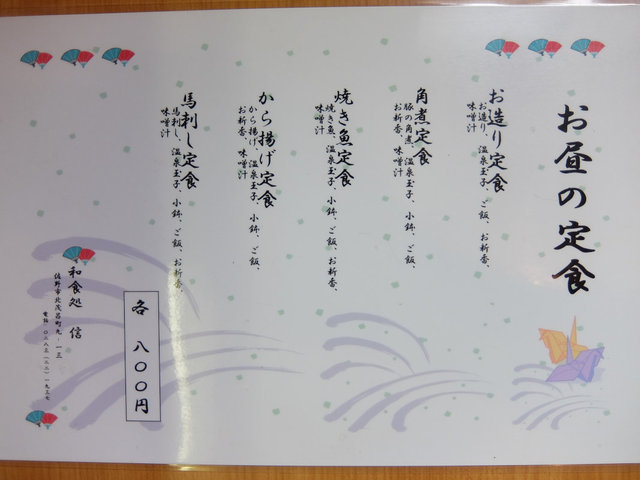 お昼の定食
お造り定食
お造り、温泉玉子、ご飯、お新香、
味噌汁
角煮定食
豚の角煮、温泉玉子、小鉢、ご飯、
お新香、味噌汁
焼き魚定食
焼き魚、温泉玉子、小鉢、ご飯、お新香、
味噌汁
から揚げ定食
から揚げ、温泉玉子、小鉢、ご飯、
お新香、味噌汁
馬刺し定食
馬刺し、温泉玉子、小鉢、ご飯、お新香、
味噌汁
各 八〇〇円
和食処 信
佐野市北茂呂町九-一三
電話 〇二八三(二三)一九三七